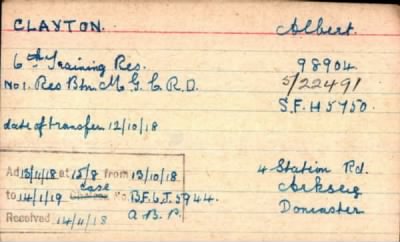 CLAYTON. Albert.
6th Training Res. 98904.
No 1. Res Btn. M.G.C.R.D. 5/22491
S.F.H 5750.
date of transfer 12/10/18
Ad 13/11/18 at 15/8 from 13/10/18 4 Station Rd.
to 14/1/19 Case No. B.F.6.I.5944. Arksey
Received 14/11/18 A.B.P. Doncaster